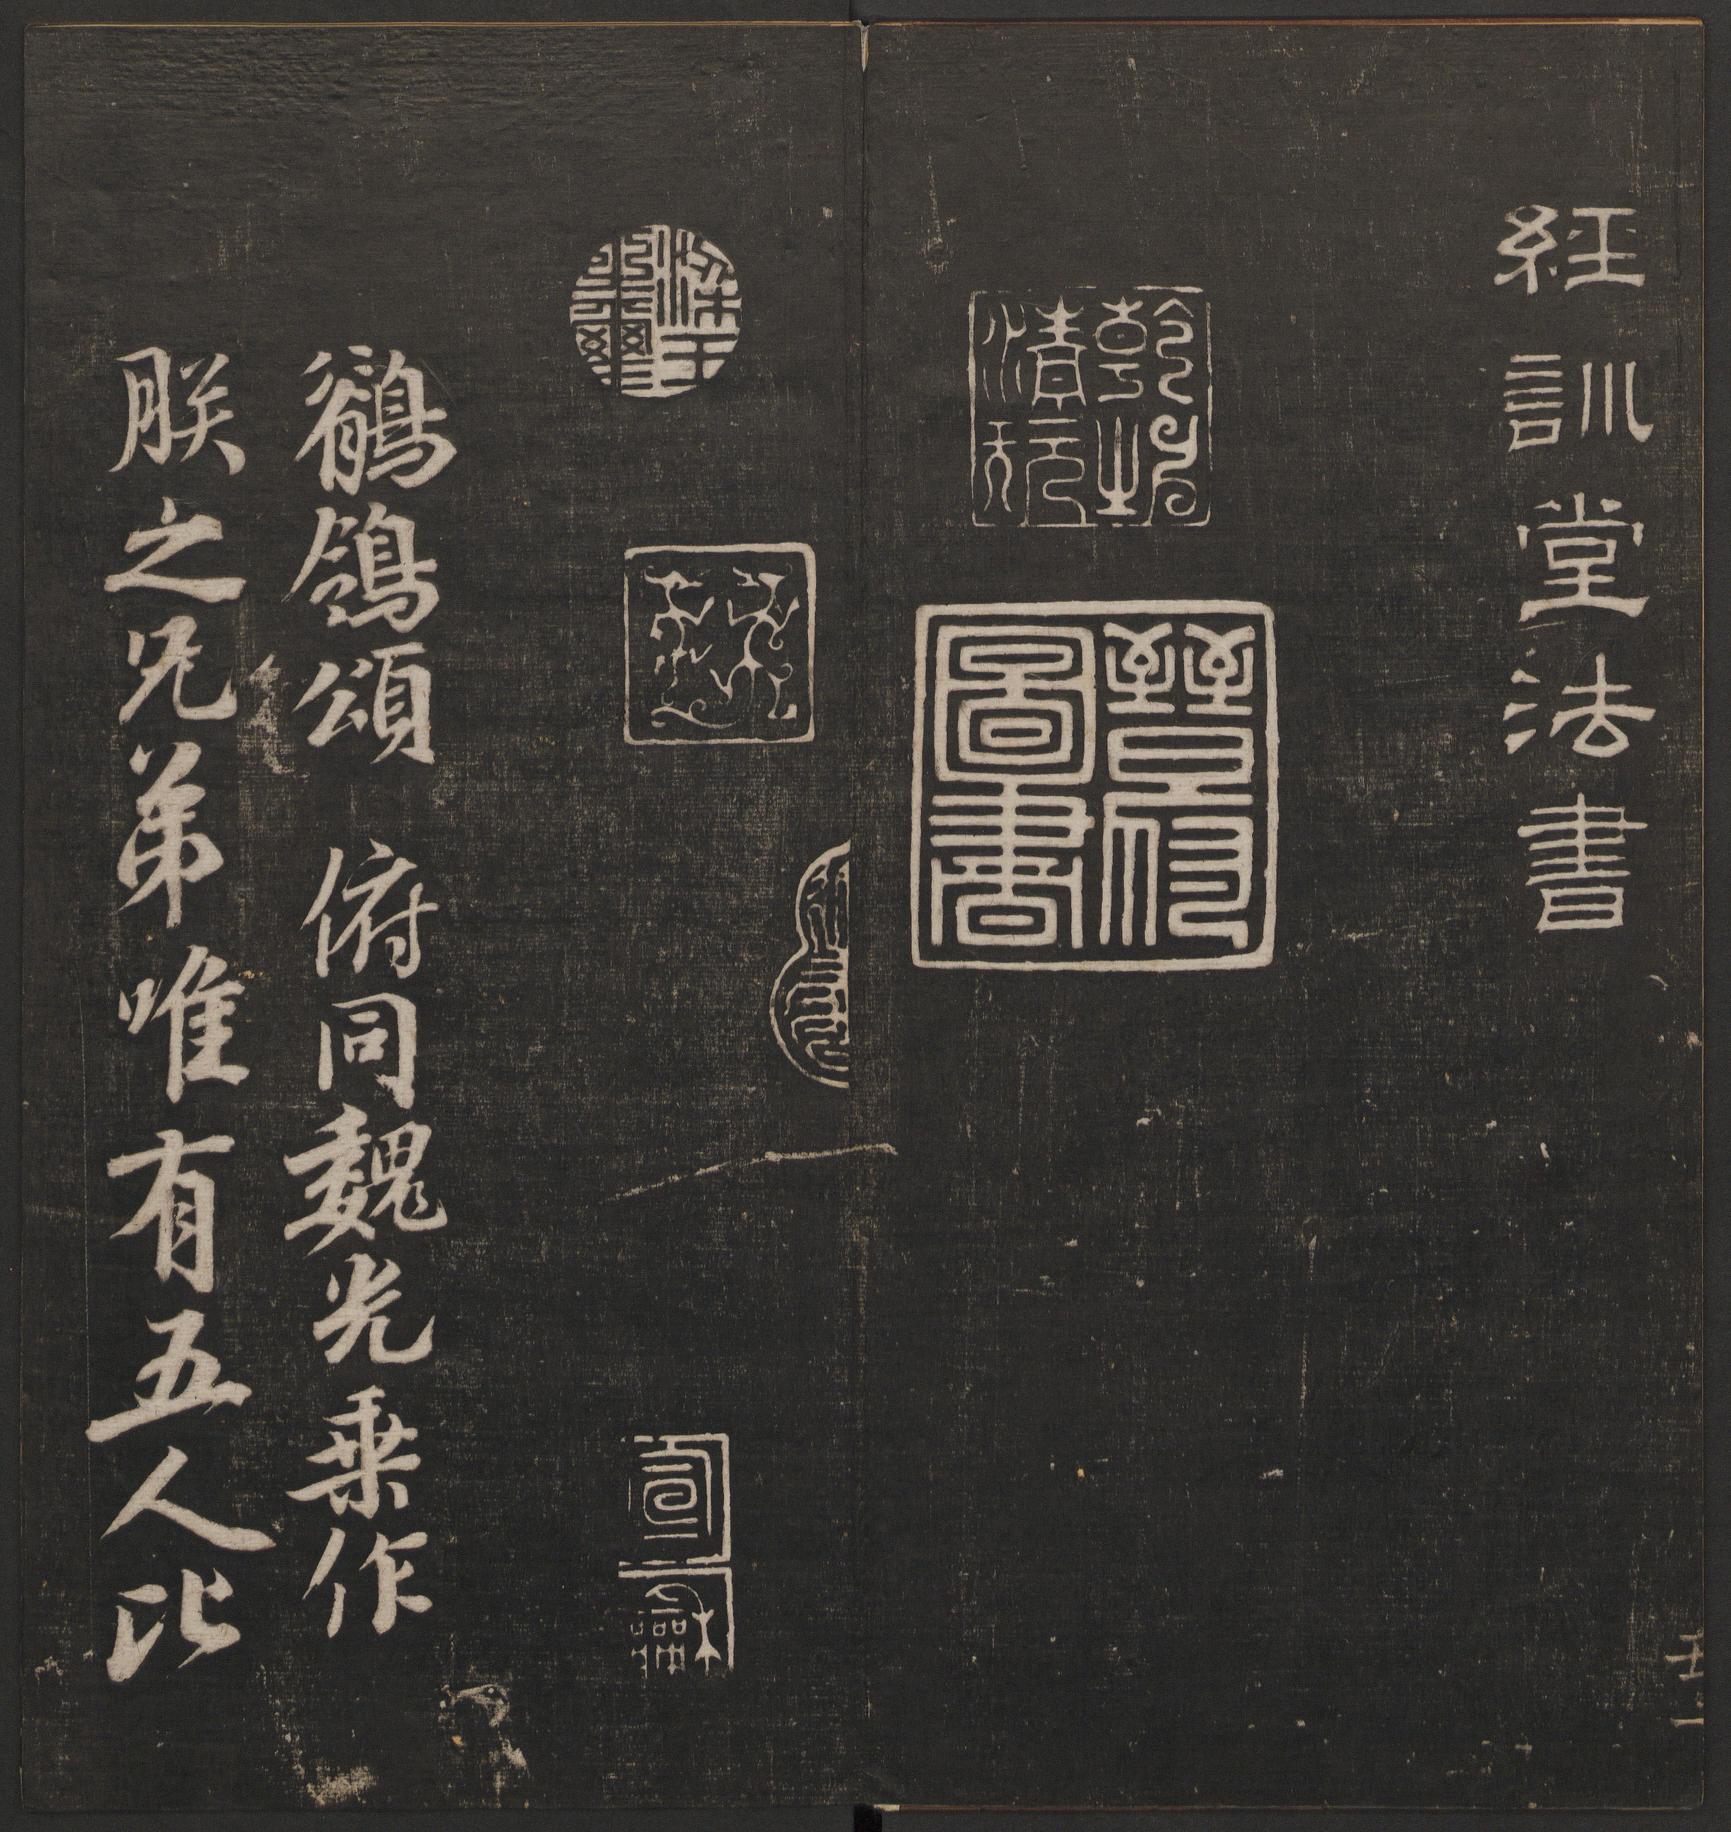 經訓堂法書
乾坤
清玩
晉府
圖書
鶺鴒頌 俯同魏光乗作
朕之兄弟唯有五人比